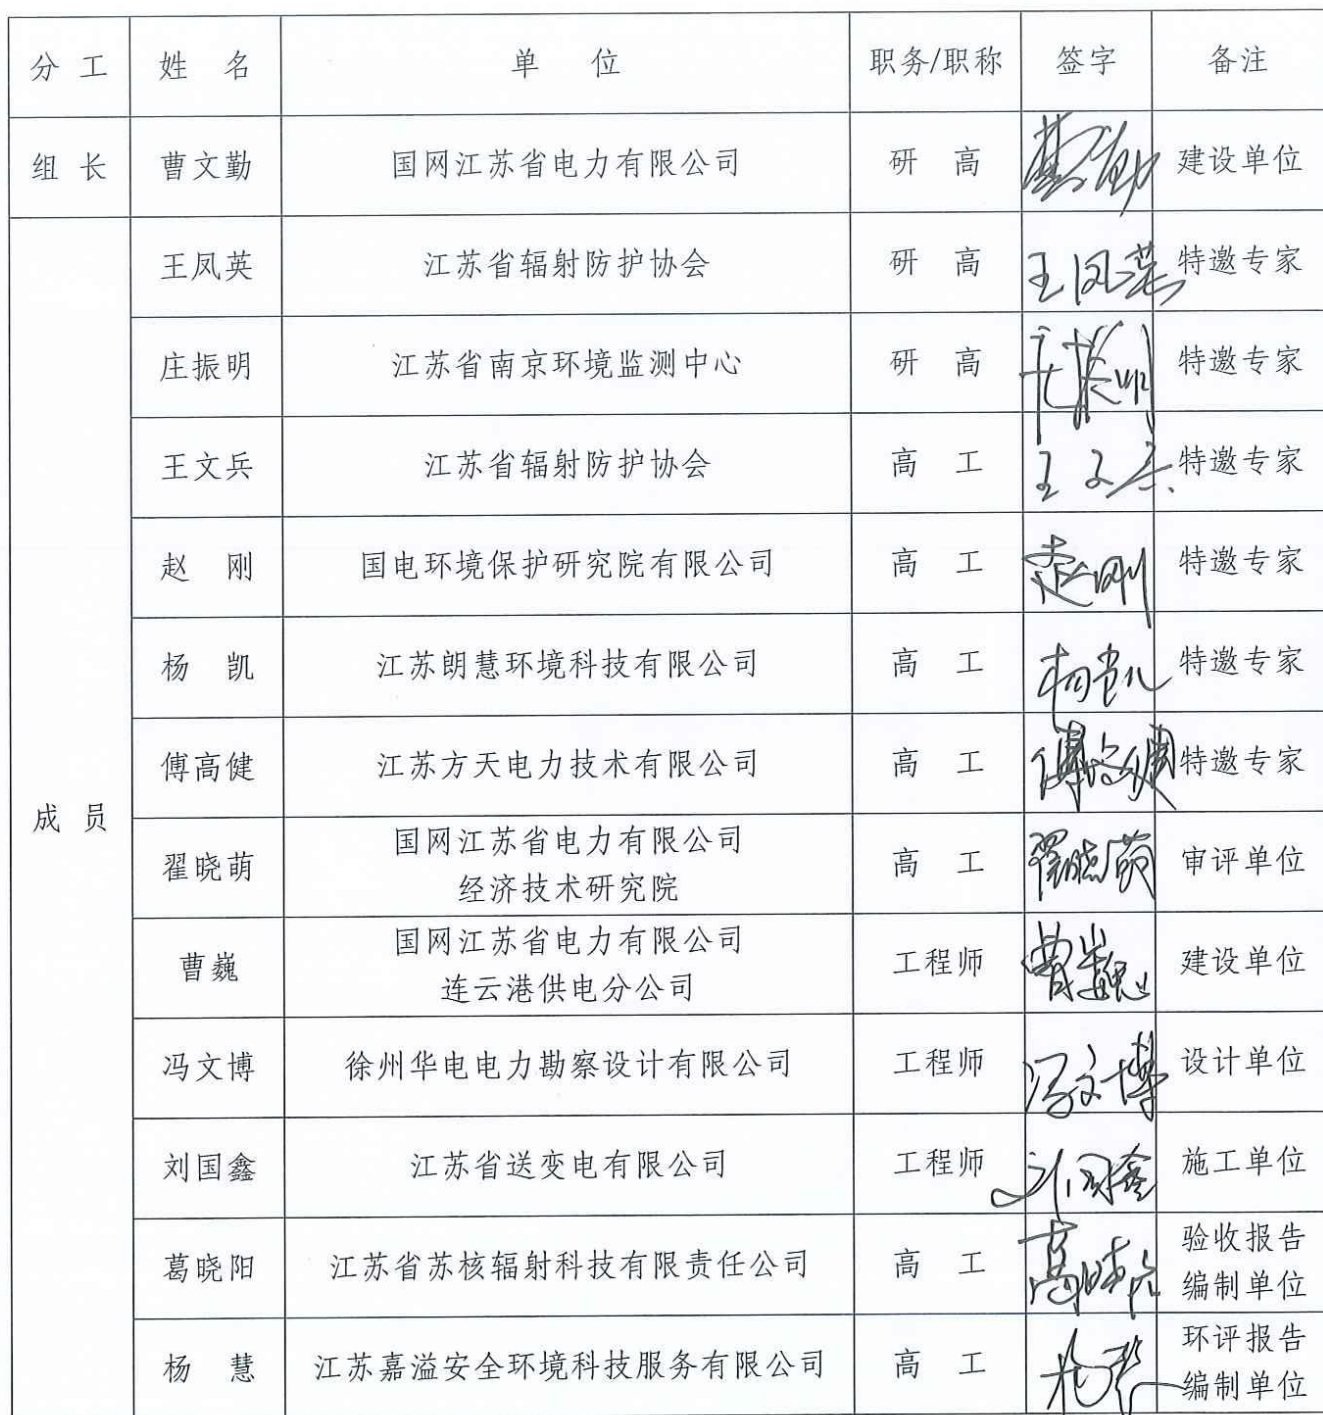 分工 姓名 单位 职务/职称 签字 备注
组长 曹文勤 国网江苏省电力有限公司 研高 曹文勤 建设单位
王凤英 江苏省辐射防护协会 研高 王凤英 特邀专家
庄振明 江苏省南京环境监测中心 研高 庄振明 特邀专家
王文兵 江苏省辐射防护协会 高工 王文兵 特邀专家
赵刚 国电环境保护研究院有限公司 高工 赵刚 特邀专家
杨凯 江苏朗慧环境科技有限公司 高工 杨凯 特邀专家
傅高健 江苏方天电力技术有限公司 高工 傅高健 特邀专家
成员
翟晓萌 国网江苏省电力有限公司 高工 翟晓萌 审评单位
经济技术研究院
曹巍 国网江苏省电力有限公司 工程师 曹巍 建设单位
连云港供电分公司
冯文博 徐州华电电力勘察设计有限公司 工程师 冯文博 设计单位
刘国鑫 江苏省送变电有限公司 工程师 刘国鑫 施工单位
葛晓阳 江苏省苏核辐射科技有限责任公司 高工 葛晓阳 验收报告
编制单位
杨慧 江苏嘉溢安全环境科技服务有限公司 高工 杨慧 环评报告
编制单位